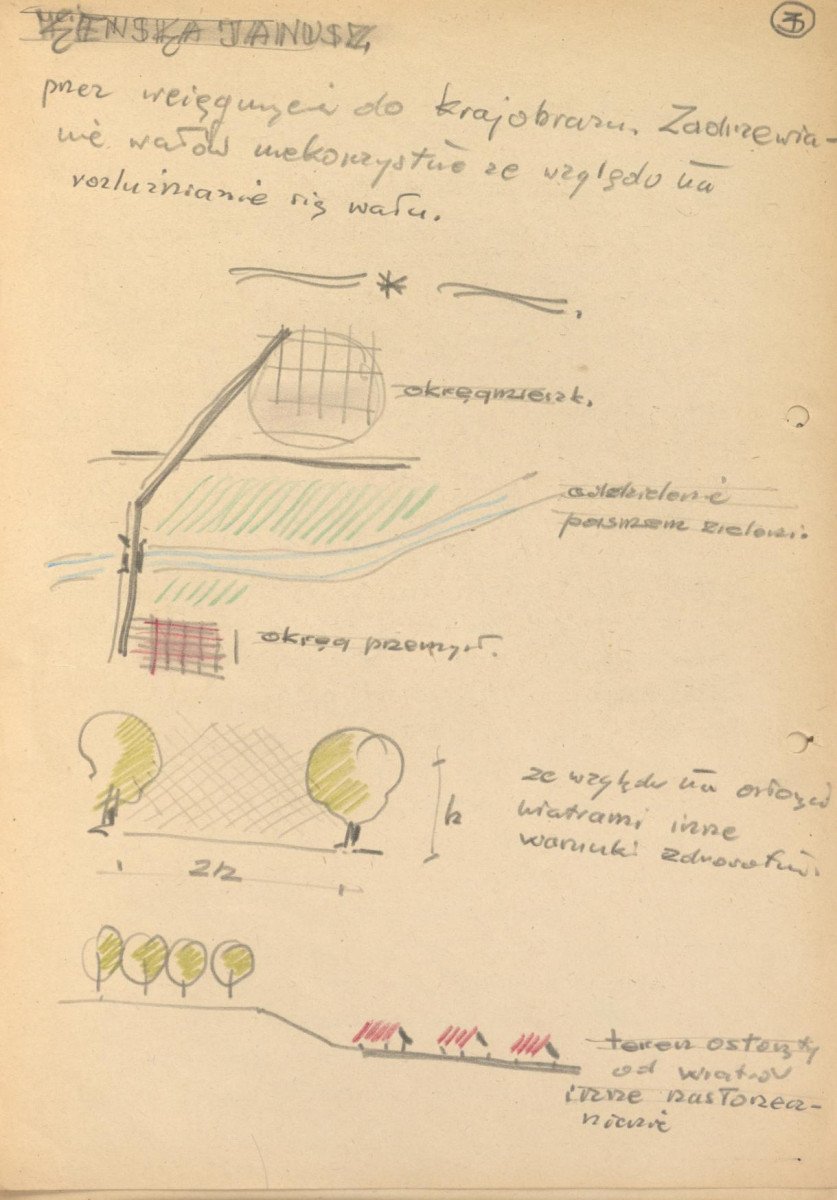 JANUSZ
3
przez wciągnięcie do krajobrazu. Zadrzewia-
nie wałów niekorzystne ze względu na
rozluźnianie się wału.
okręg mieszk.
oddzielenie
pasmem zieleni.
okręg przemysł.
h
2h
ze względu na
wiatrami inne
warunki zdrowotne.
teren
od wiatrów
inne nasłonecz-
nienie